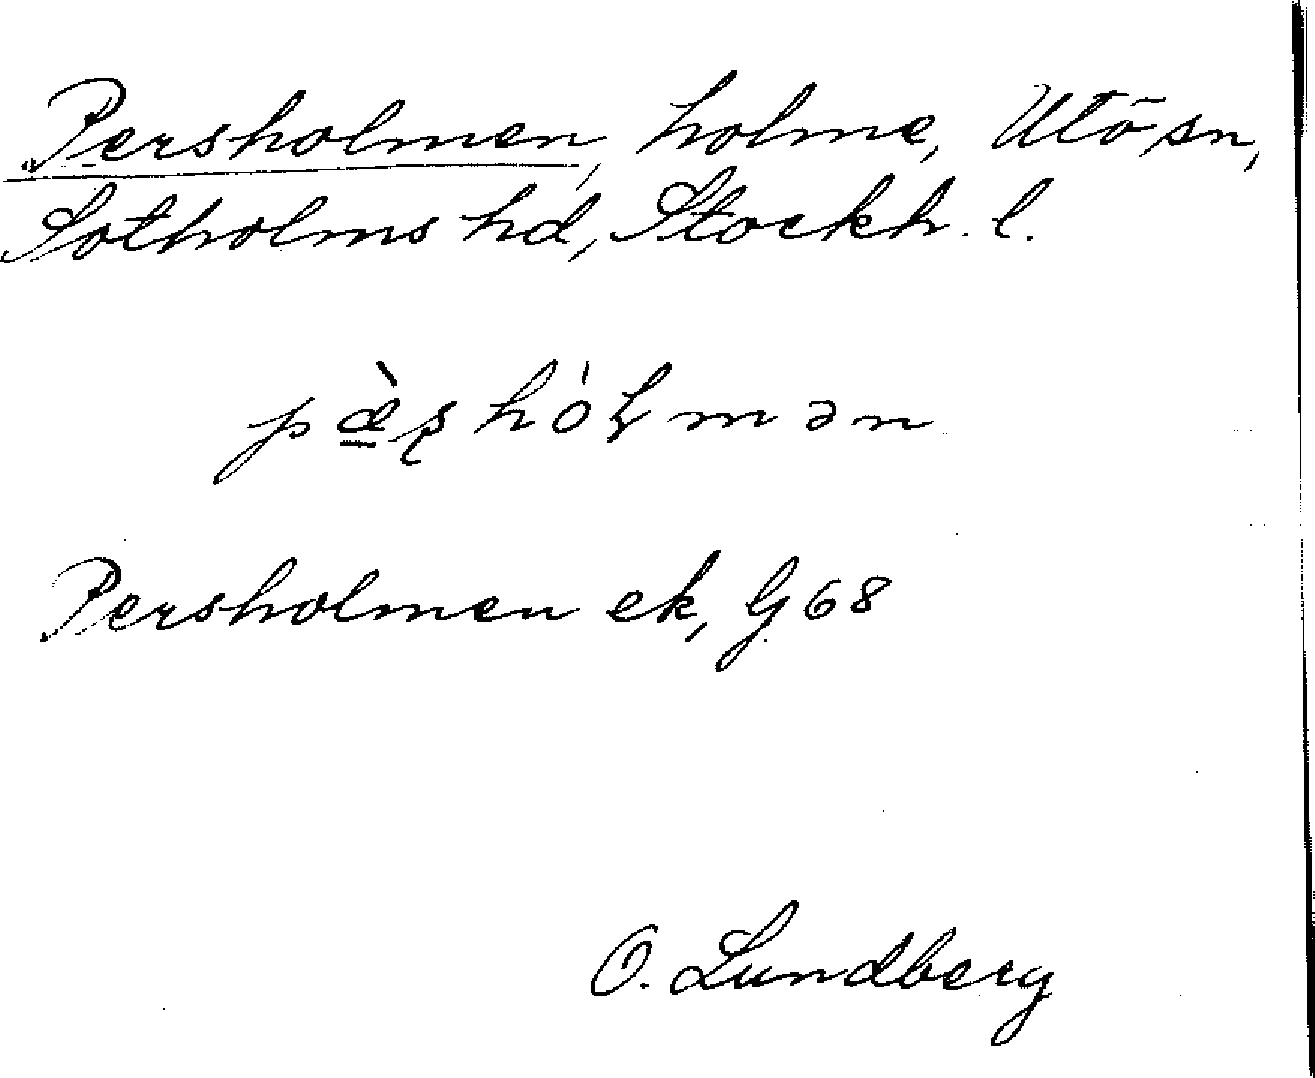 Persholmen, holme, Utö sn,
Sotholms hd, Stockh. l.
pæ̠̀ʂhóɫmən
Persholmen ek, G 68
O. Lundberg